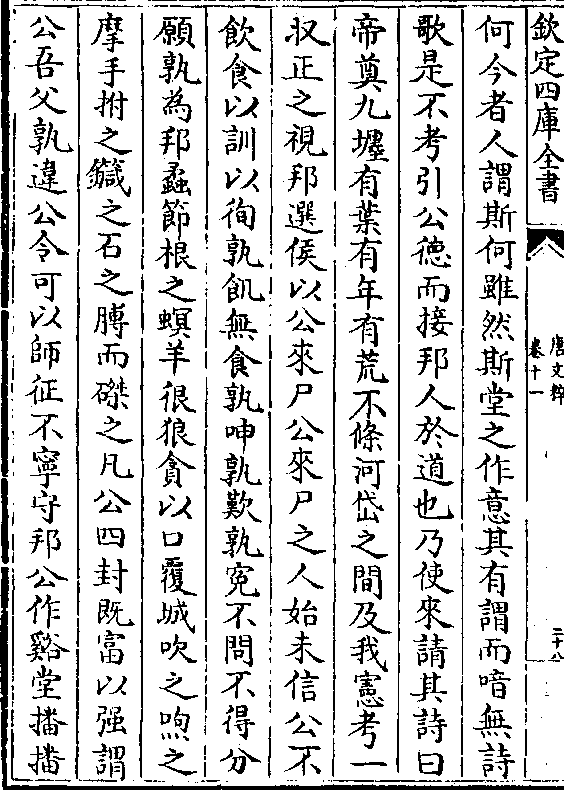 欽定四庫全書
唐文粹
卷十一
二十八
何今者人謂斯何雖然斯堂之作意其有謂而喑無詩
歌是不考引公德而接邦人於道也乃使來請其詩曰
帝奠九壥有葉有年有荒不條河岱之間及我憲考一
収正之視邦選侯以公來尸公來尸之人始未信公不
飲食以訓以徇孰飢無食孰呻孰歎孰冤不問不得分
願孰為邦蟊節根之螟羊很狼貪以口覆城吹之喣之
摩手拊之鍼之石之膊而磔之凡公四封既富以强謂
公吾父孰違公令可以師征不寧守邦公作谿堂播播